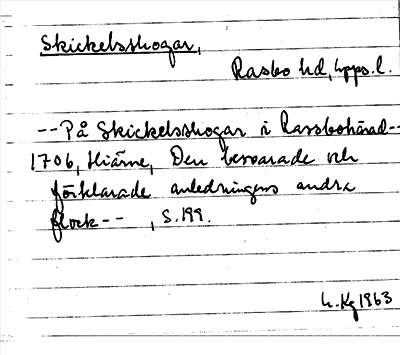 Skickelsskogar,
Rasbo hd, Upps. l.
-- På Skickelsskogar i Rassbohärad --
1706, Hiärne, Den besvarade och
förklarade anledningens andra
flock -- , S. 199.
L. Kg 1963